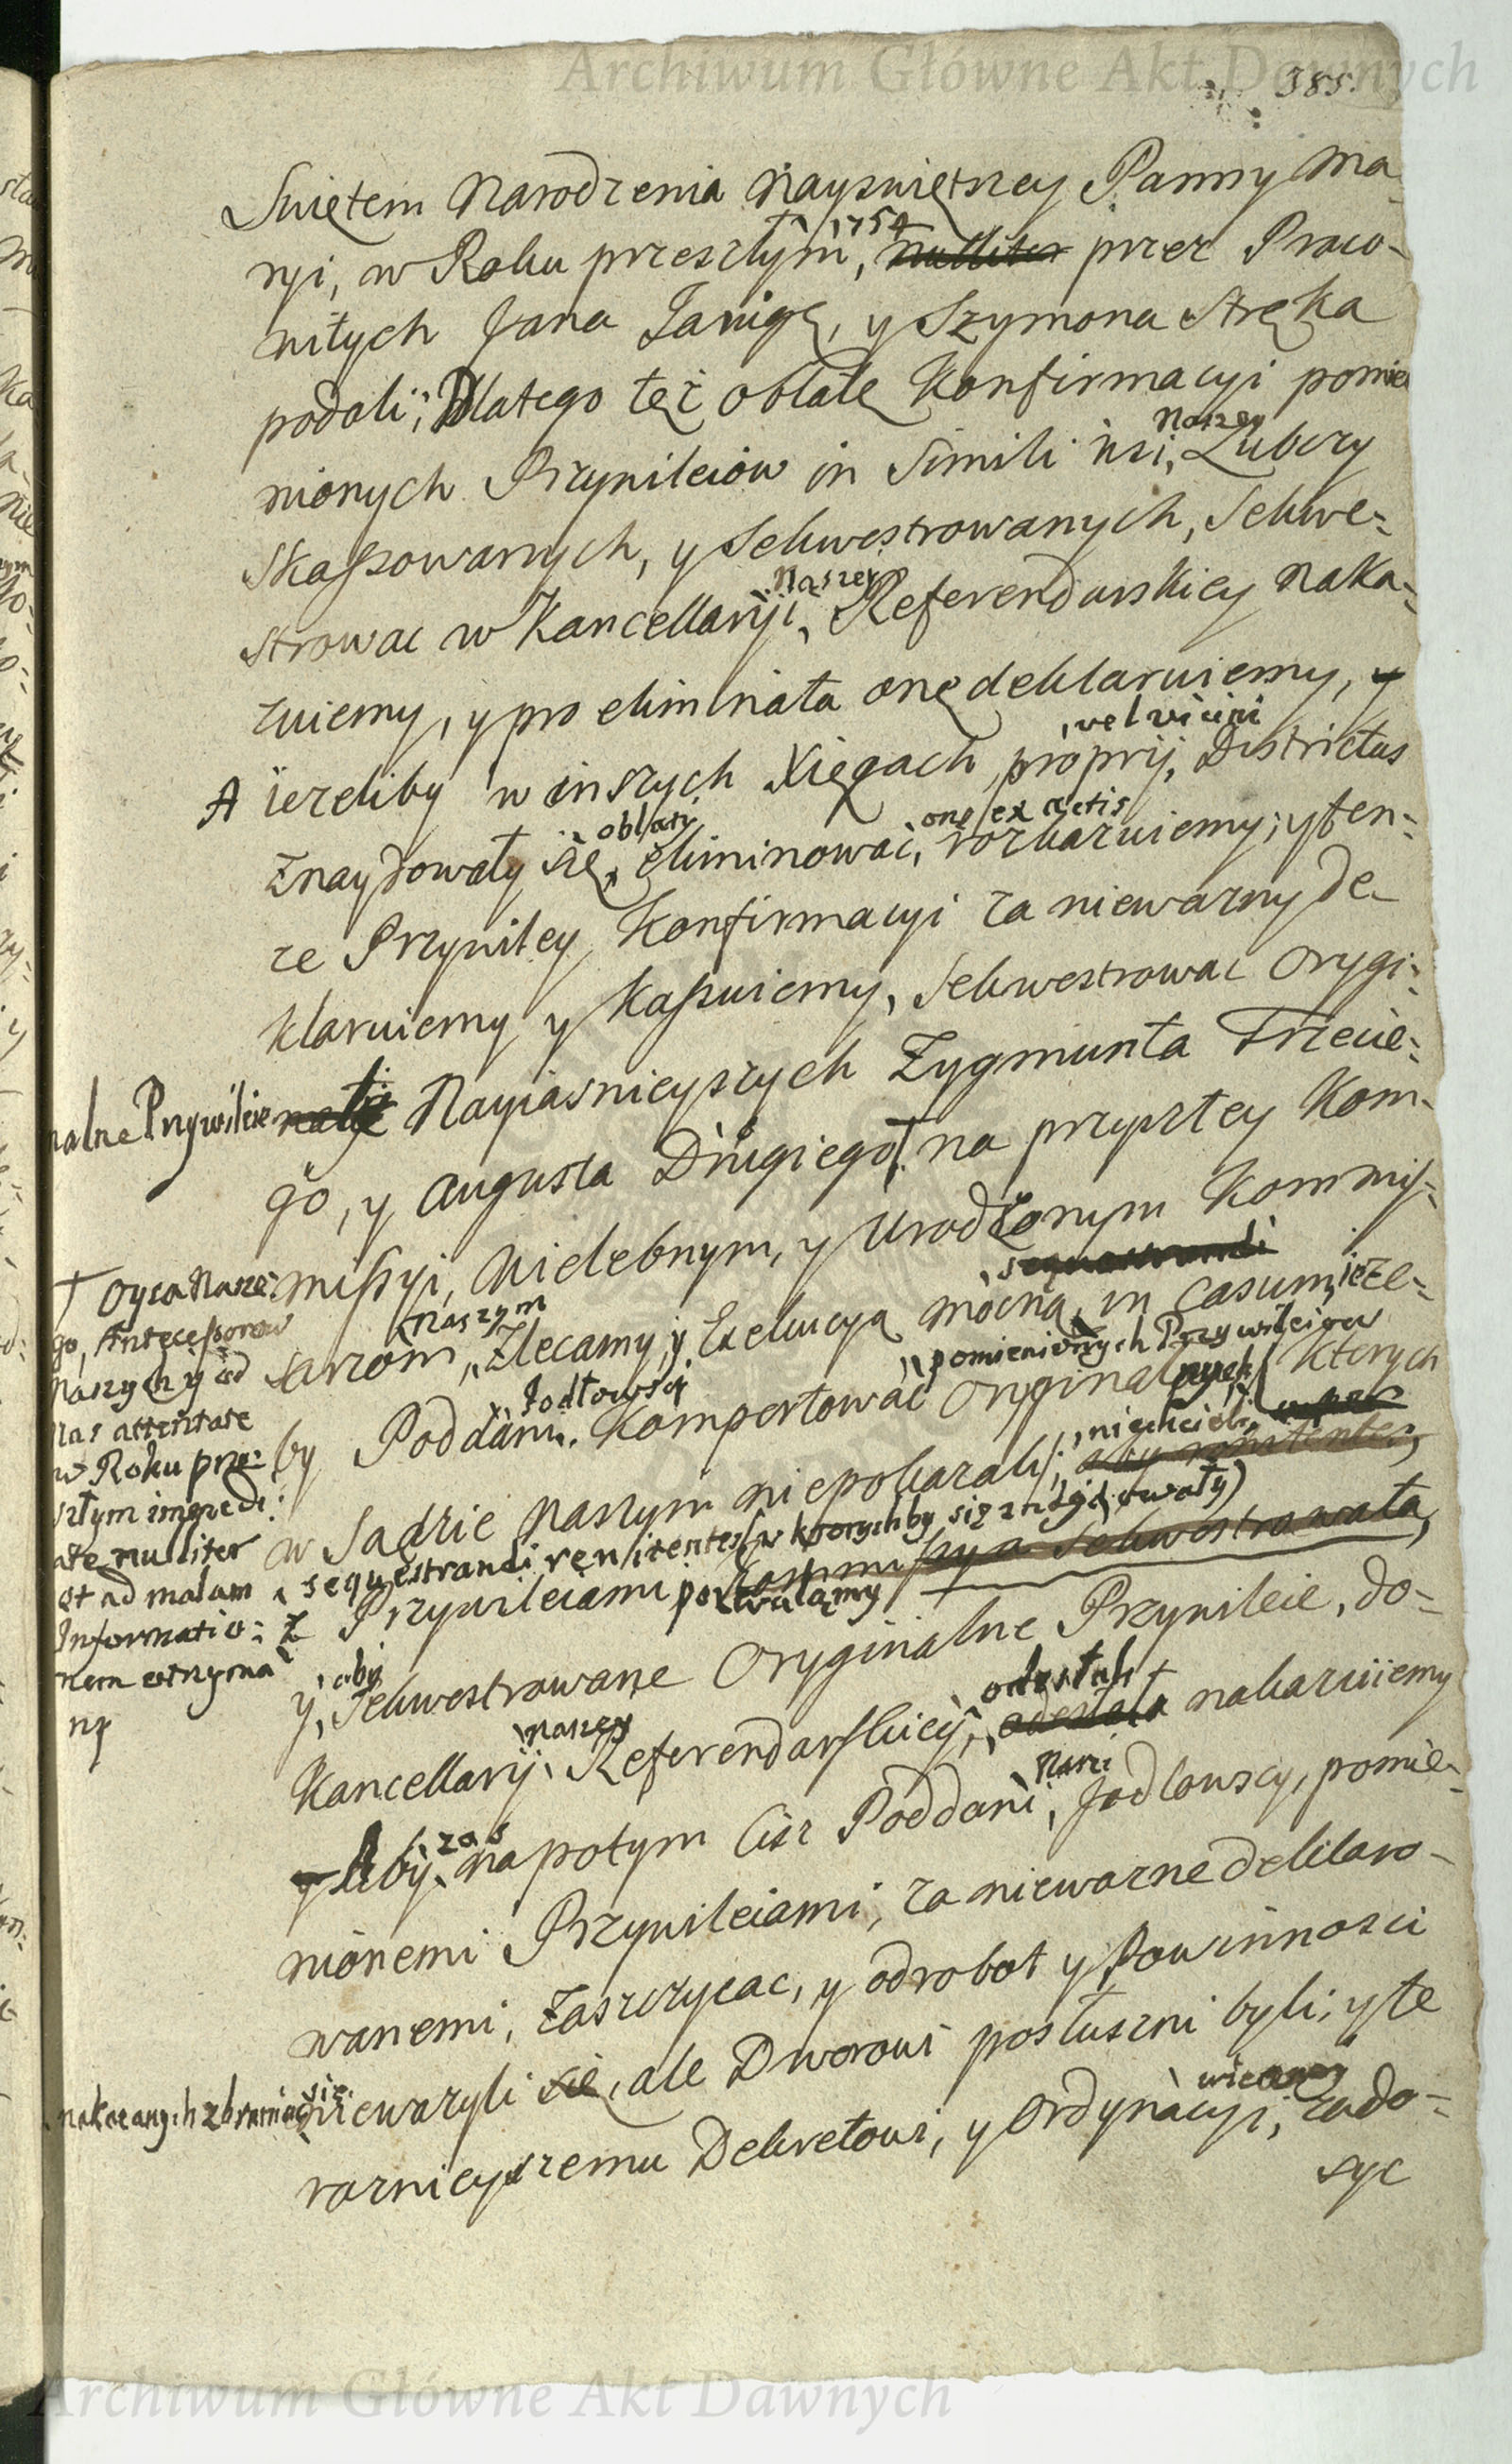 Archiwum Główne Akt Dawnych
385.
Swiętem Narodzenia Nayswiętszey Panny Ma
ryi, w Roku przeszłym, 1754 nulliter przez Praco-
witych Jana Janigę, y Szymona Stręka
podali; Dlatego też oblatę Konfirmacyi pomie
nionych Przywileiow in Simili wsi, Naszey Lubczy
skassowanych, y Sekwestrowanych, Sekwe-
strowac w Kancellaryi, Naszey Referendarskiey naka-
zuiemy, y pro eliminata onę deklaruiemy, y
A ieżeliby w inszych Xięgach proprij, vel vicini Districtus
znaydowały się, oblaty eliminować, one ex actis rozkazuiemy; y ten-
że Przywiley Konfirmacyi za niewazny de-
klaruiemy y kassuiemy, Sekwestrowac Orygi-
nalne Przywileie Nayiasnieyszych Zygmunta Trzecie-
go, y Augusta Drugiego † na przyszłey Kom-
missyi, Wielebnym, y Urodzonym Kommis-
sarzom, Naszym Zlecamy, y Exekucyą mocną, sequestrandi in casum, ieże-
by Poddani, Jodłowscy Komportować Oryginalnych, pomienionych Przywileiow ktorych
w Sądzie Naszym niepokazali, niechcieli,
sequestrandi renitentes (w ktorychby się znaydowały)
z Przywileiami pozwalamy Kommissya Sekwestrowała,
y, aby Sekwestrowane Oryginalne Przywileie, do-
Kancellaryi, Naszey Referendarskiey, odesłali odesłała nakazuiemy
Aby zas napotym Ciż Poddani, Nasi Jodłowscy, pomie-
nionemi Przywileiami, za niewazne deklaro-
wanemi, zaszczycac, y od robot y Powinnosci
nakazanych zbraniac się niewazyli się, ale Dworowi posłuszni byli, y te
raznieyszemu Dekretowi, y Ordynacyi, zado-
syc
† Oyca Nasze:
go, Antecessorow
Naszych y od
Nas attentate
w Roku prze:
szłym impedi:
ate nulliter
et ad malam
Informatio:
nem otrzyma
ne
Archiwum Główne Akt Dawnych